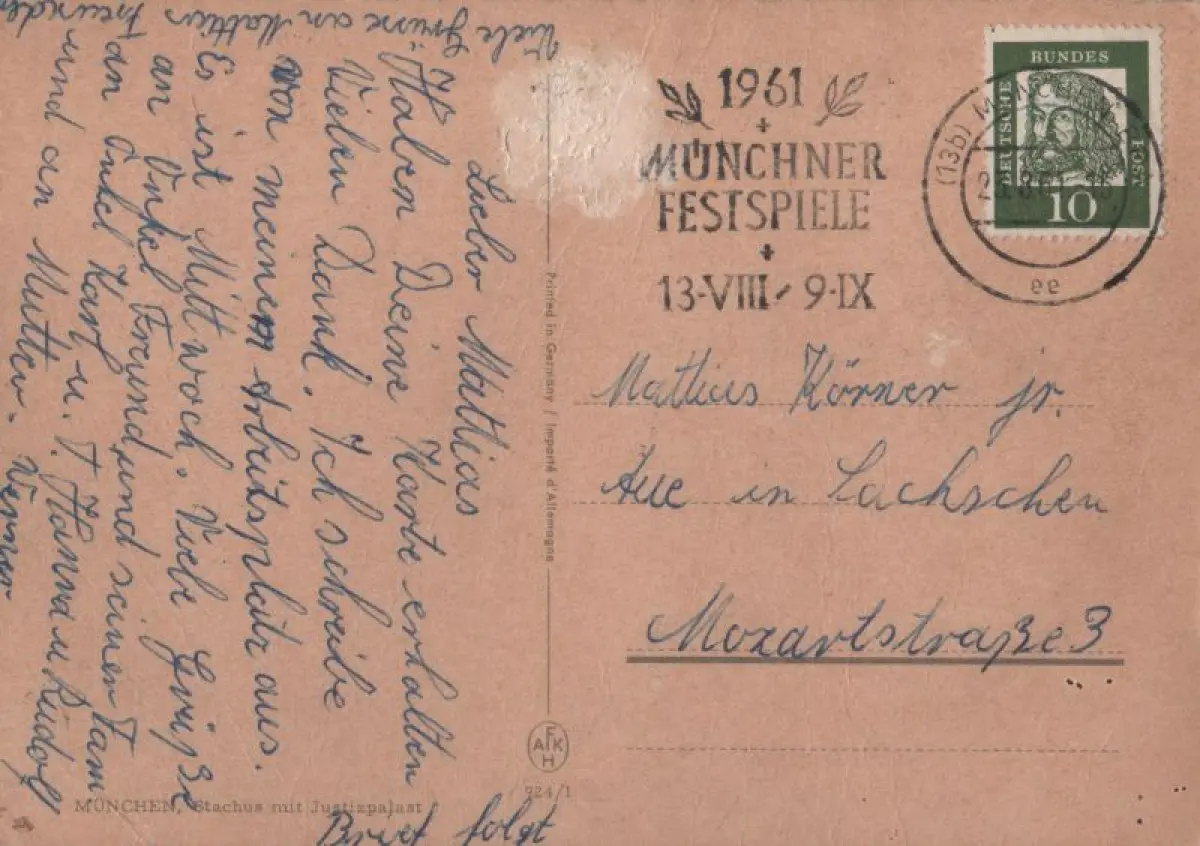 Lieber Mattias
Haben Deine Karte erhalten
Vielen Dank. Ich schreibe
von meinem Arbeitsplatz aus.
Es ist Mittwoch. Viele Grüße
an Onkel Freund und seiner Fam
an Onkel Karl u. T Hanna u Rudolf
und an Mutter. Werner
Viele Grüsse an Mattias
Freunde
Brief folgt
MÜNCHEN, Stachus mit Justizpalast
Printed in Germany / Importé d'Allemagne
AFKH
924/1
1961
MÜNCHNER
FESTSPIELE
13-VIII - 9-IX
(13b)
ee
DEUTSCHE
BUNDES
POST
10
Mattias Körner jr.
Aue in Sachschen
Mozartstraße 3